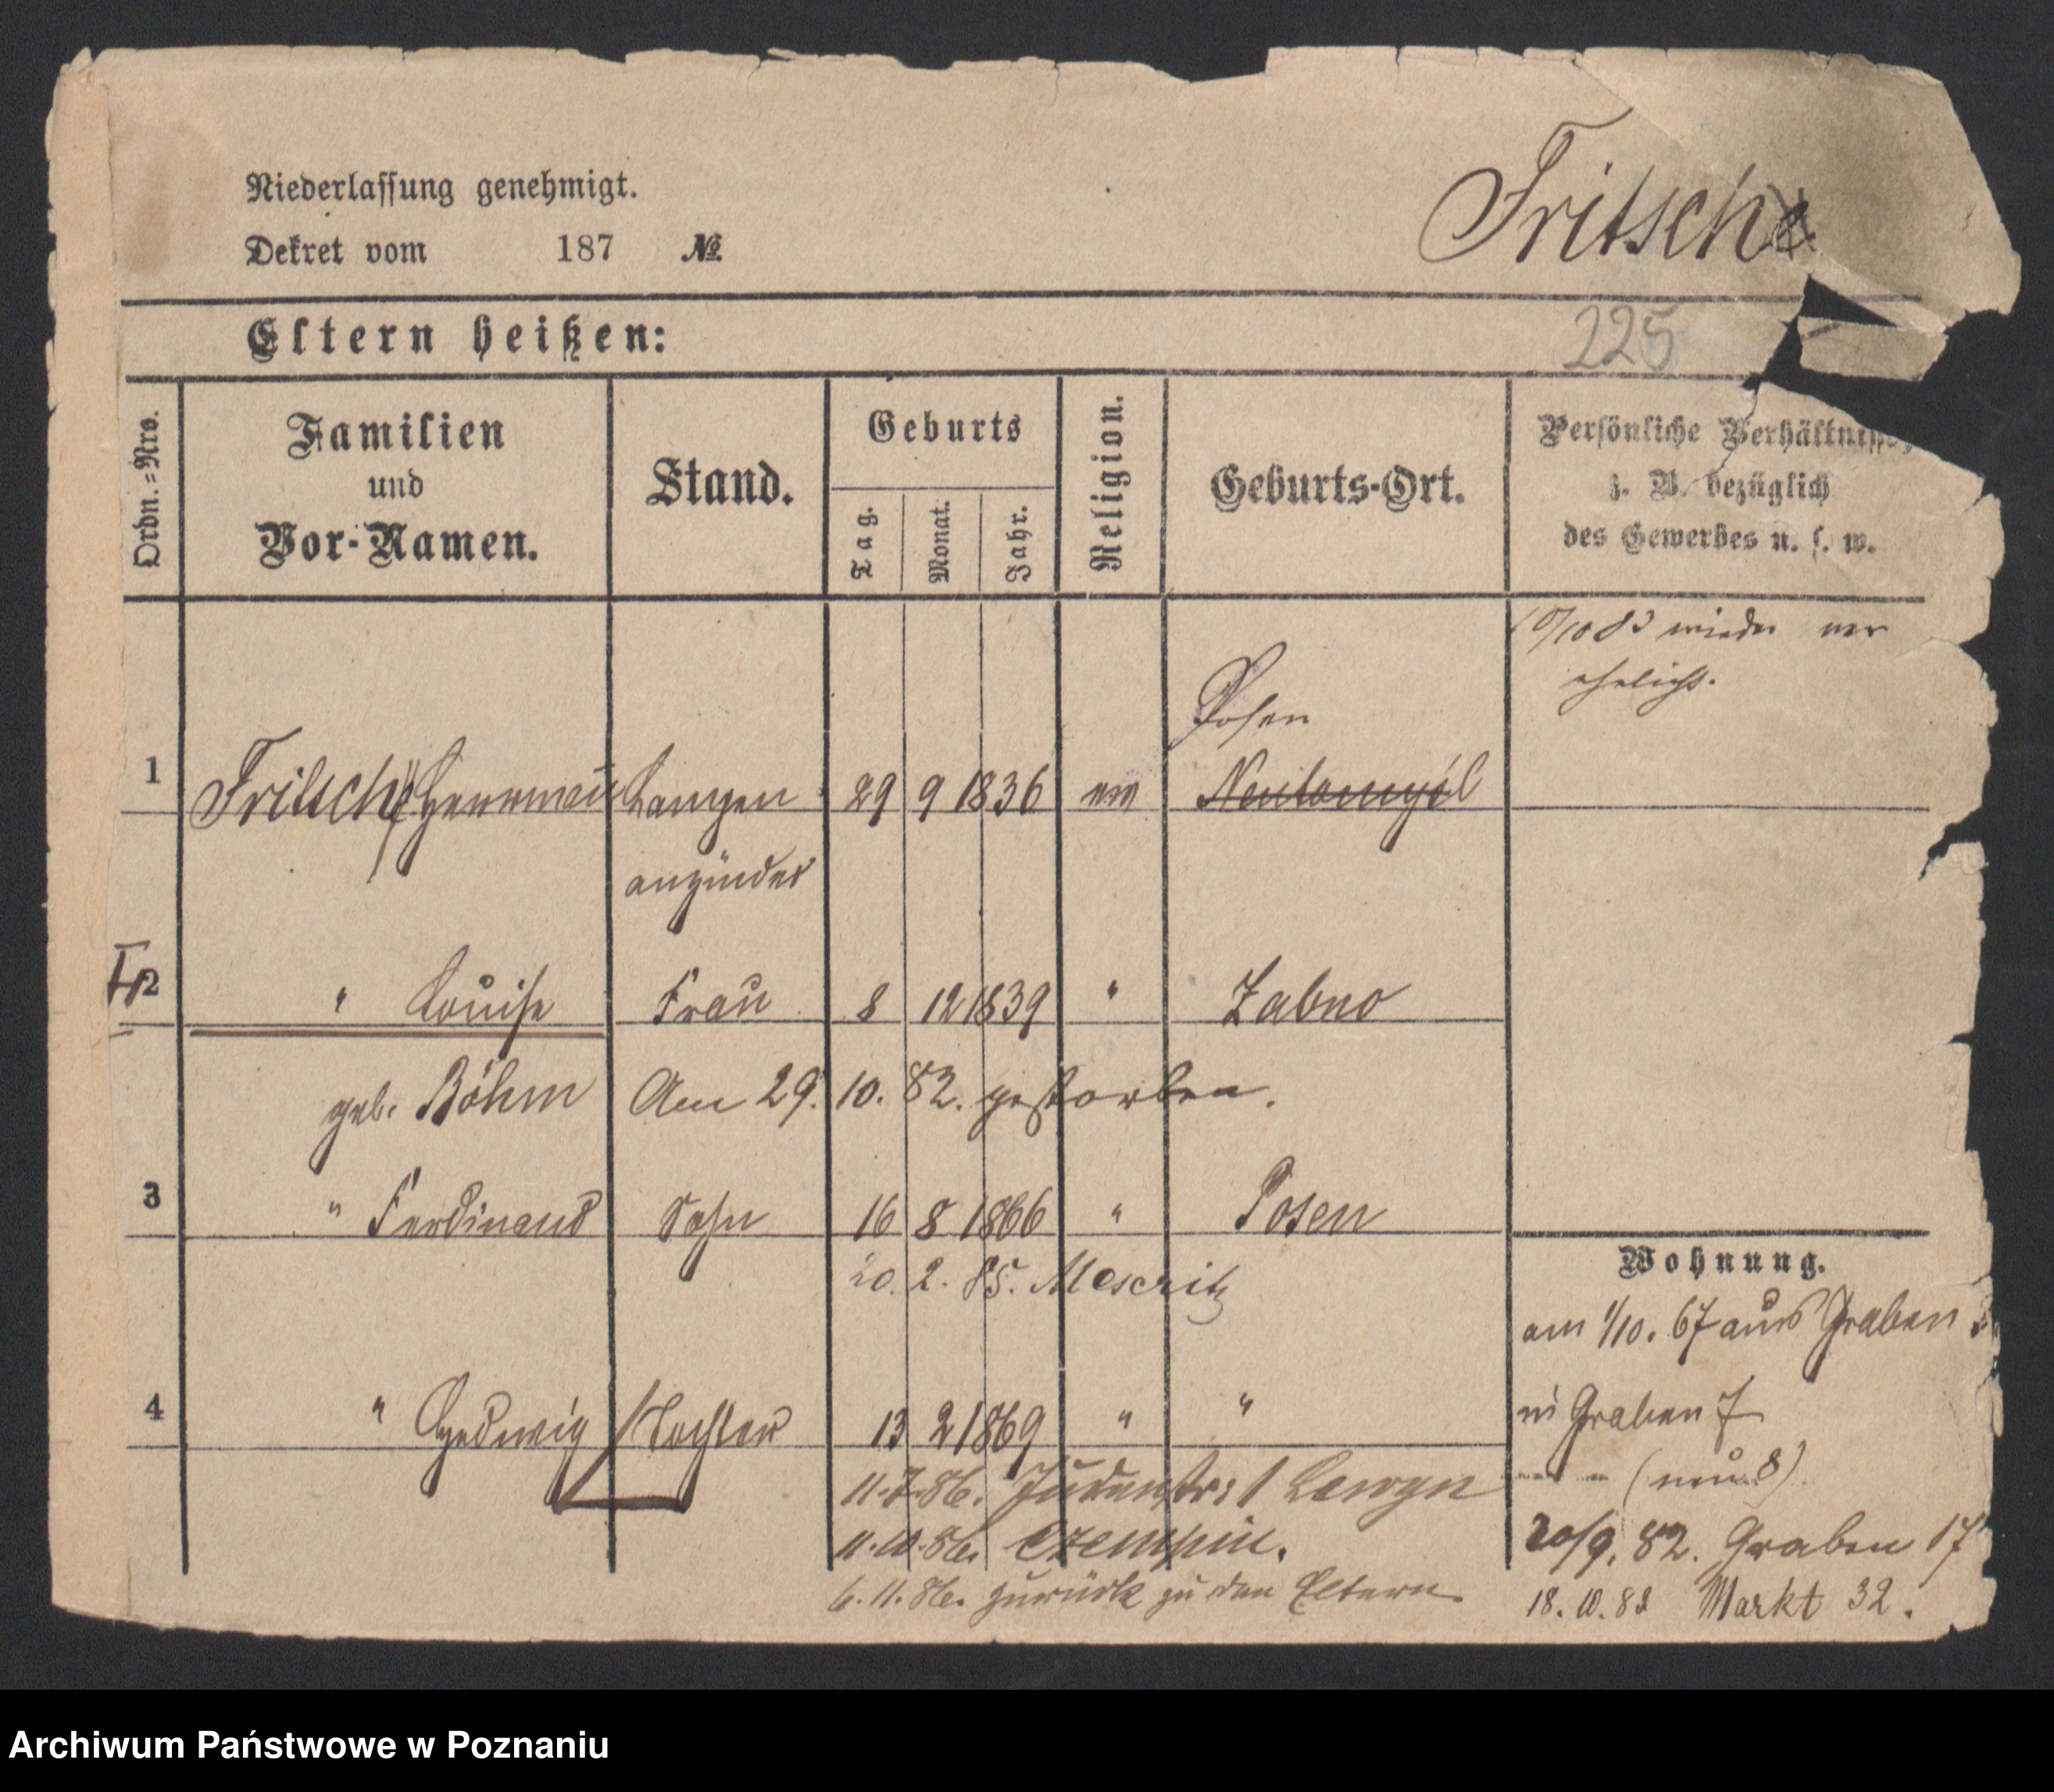 Niederlassung genehmigt.
Dekret vom 187 №
Fritsch
225
Eltern heißen:
Ordn.-Nro.
Familien
und
Vor-Namen.
Stand.
Geburts
Tag.
Monat.
Jahr.
Religion.
Geburts-Ort.
Persönliche Verhältnisse,
z. B. bezüglich
des Gewerbes u. s. w.
/10 83 wieder ver
ehelicht.
Posen
1 Fritsch Herrmann Lampen 29 9 1836 ev Neutomysl
anzünder
2 " Louise Frau 8 12 1839 " Zabno
geb. Böhm Am 29. 10. 82. gestorben.
3 " Ferdinand Sohn 16 8 1866 " Posen
20. 2. 85. Meseritz
4 " Hedwig Tochter 13 2 1869 " "
11.7.86. Judenstr: 1
11.10.86. Czempin.
6.11.86. zurück zu den Eltern.
Wohnung.
am 1/10. 67 aus Graben
in Graben 7
(neu 8)
20/9. 82. Graben 17
18.10.83 Markt 32.
Archiwum Państwowe w Poznaniu